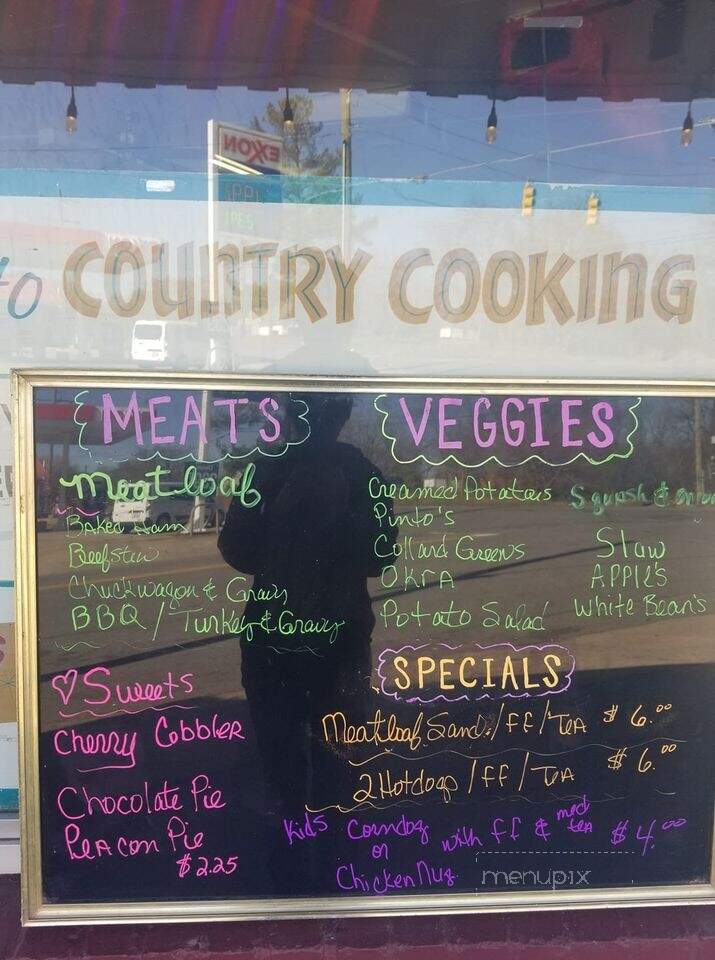 EXXON
to COUNTRY COOKING
MEATS
Meatloaf
Baked Ham
Beefstew
Chuckwagon & Gravy
BBQ / Turkey & Gravy
Sweets
Cherry Cobbler
Chocolate Pie
Peacan Pie
$2.25
VEGGIES
Creamed Potatoes Squash & onion
Pinto's
Collard Greens Slaw
OKRA APPle's
Potato Salad White Bean's
SPECIALS
Meatloaf Sand. / FF / TEA $6.00
2 Hotdogs / FF / TEA $6.00
Kids Corndog with FF & med tea $4.00
or
Chicken Nug.
menupix